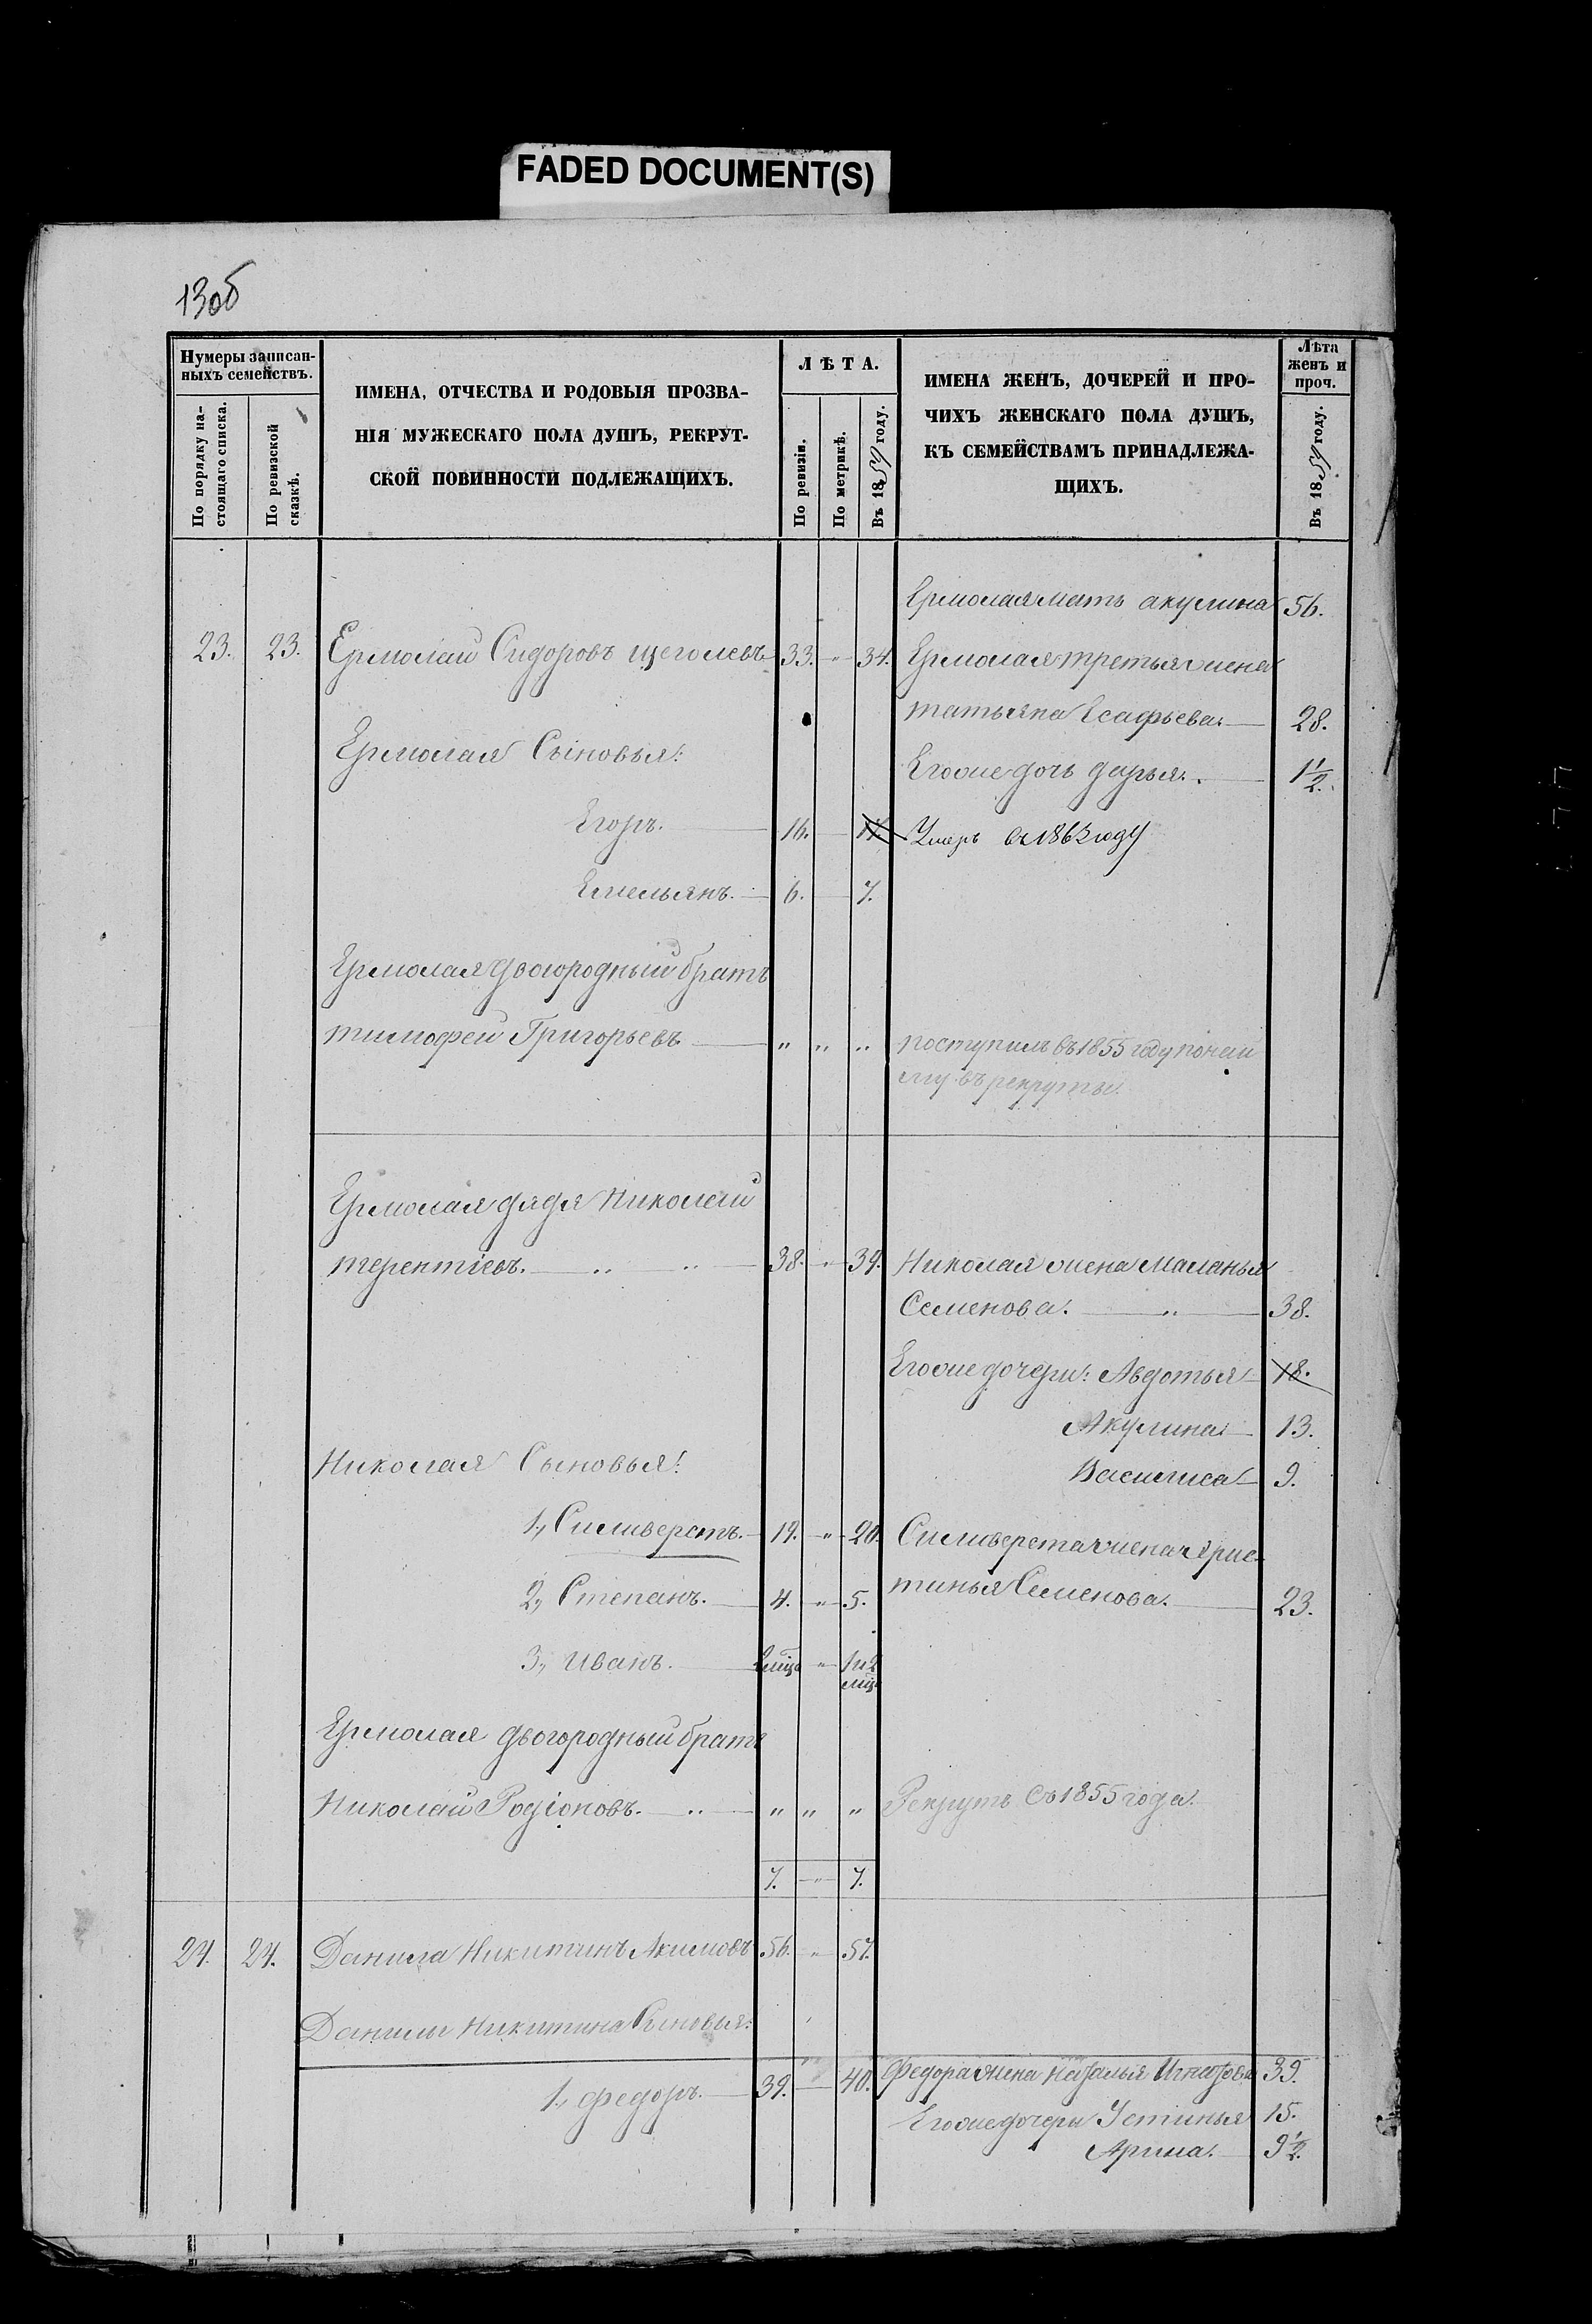 FADED DOCUMENT(S)
13об
Нумеры записан-
ныхъ семействъ.
По порядку на-
стоящаго списка.
По ревизской
сказкѣ.
ИМЕНА, ОТЧЕСТВА И РОДОВЫЯ ПРОЗВА-
НІЯ МУЖЕСКАГО ПОЛА ДУШЪ, РЕКРУТ-
СКОЙ ПОВИННОСТИ ПОДЛЕЖАЩИХЪ.
ЛѢТА.
По ревизіи.
По метрикѣ.
Въ 1859 году.
ИМЕНА ЖЕНЪ, ДОЧЕРЕЙ И ПРО-
ЧИХЪ ЖЕНСКАГО ПОЛА ДУШЪ,
КЪ СЕМЕЙСТВАМЪ ПРИНАДЛЕЖА-
ЩИХЪ.
Лѣта
женъ и
проч.
Въ 1859 году.
Ермолая мать акулина 56.
23. 23. Ермолай Сидоровъ щеголевъ 33. " 34. Ермолая третья жена
татьяна Есафьева. 28.
Ермолая Сыновья:
Егоже дочь дарья. 1 1/2.
Егоръ. 16. 17. Умеръ въ 1863 году
Емельянъ. 6. 7.
Ермолая двоюродный братъ
тимофей Григорьевъ " " " поступилъ въ 1855 году по най
му въ рекруты.
Ермолая дядя Николай
терентіевъ. " " 38. " 39. Николая жена Маланья
Семенова. " 38.
Егоже дочери: Авдотья 18.
Акулина 13.
Николая Сыновья:
Василиса 9.
1., Силиверстъ. 19. " 20. Силиверста жена хрис-
2., Степанъ. 4. " 5. тинья Семенова. 23.
3., Иванъ. мцъ " 1 и 2
мцъ
Ермолая двоюродный братъ
Николай Родіоновъ. " " " " Рекрутъ съ 1855 года.
7. " 7.
24. 24. Данила Никитинъ Акимовъ 56. " 57.
Данилы Никитина Сыновья:
1., федоръ. 39. 40. Федора жена Наталья Игнатова 39.
Егоже дочери Устинья 15.
Арина. 9 1/2.